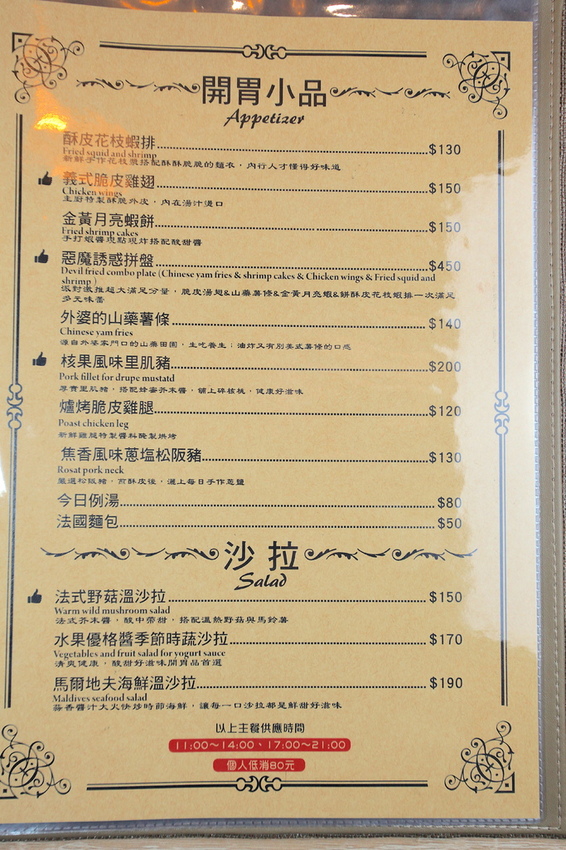 開胃小品
Appetizer
酥皮花枝蝦排 $130
Fried squid and shrimp
新鮮手作花枝漿搭配酥酥脆脆的麵衣，內行人才懂得好味道
義式脆皮雞翅 $150
Chicken wings
主廚特製酥脆外皮，內在湯汁燙口
金黃月亮蝦餅 $150
Fried shrimp cakes
手打蝦醬現點現炸搭配酸甜醬
惡魔誘惑拼盤 $450
Devil fried combo plate (Chinese yam fries & shrimp cakes & Chicken wings & Fried squid and
shrimp )
派對激推超大滿足分量，脆皮湯翅&山藥薯條&金黃月亮蝦&餅酥皮花枝蝦排一次滿足
多元味蕾
外婆的山藥薯條 $140
Chinese yam fries
源自外婆家門口的山藥田園，生吃養生；油炸又有別美式薯條的口感
核果風味里肌豬 $200
Pork fillet for drupe mustatd
厚實里肌豬，搭配蜂蜜芥末醬，舖上碎核桃，健康好滋味
爐烤脆皮雞腿 $120
Poast chicken leg
新鮮雞腿特製醬料醃製烘烤
焦香風味蔥塩松阪豬 $130
Rosat pork neck
嚴選松阪豬，煎酥皮後，灑上每日手作蔥鹽
今日例湯 $80
法國麵包 $50
沙拉
Salad
法式野菇溫沙拉 $150
Warm wild mushroom salad
法式芥末醬，酸中帶甜，搭配溫熱野菇與馬鈴薯
水果優格醬季節時蔬沙拉 $170
Vegetables and fruit salad for yogurt sauce
清爽健康，酸甜好滋味開胃品首選
馬爾地夫海鮮溫沙拉 $190
Maldives seafood salad
蒜香醬汁大火快炒時節海鮮，讓每一口沙拉都是鮮甜好滋味
以上主餐供應時間
11:00~14:00、17:00~21:00
個人低消80元